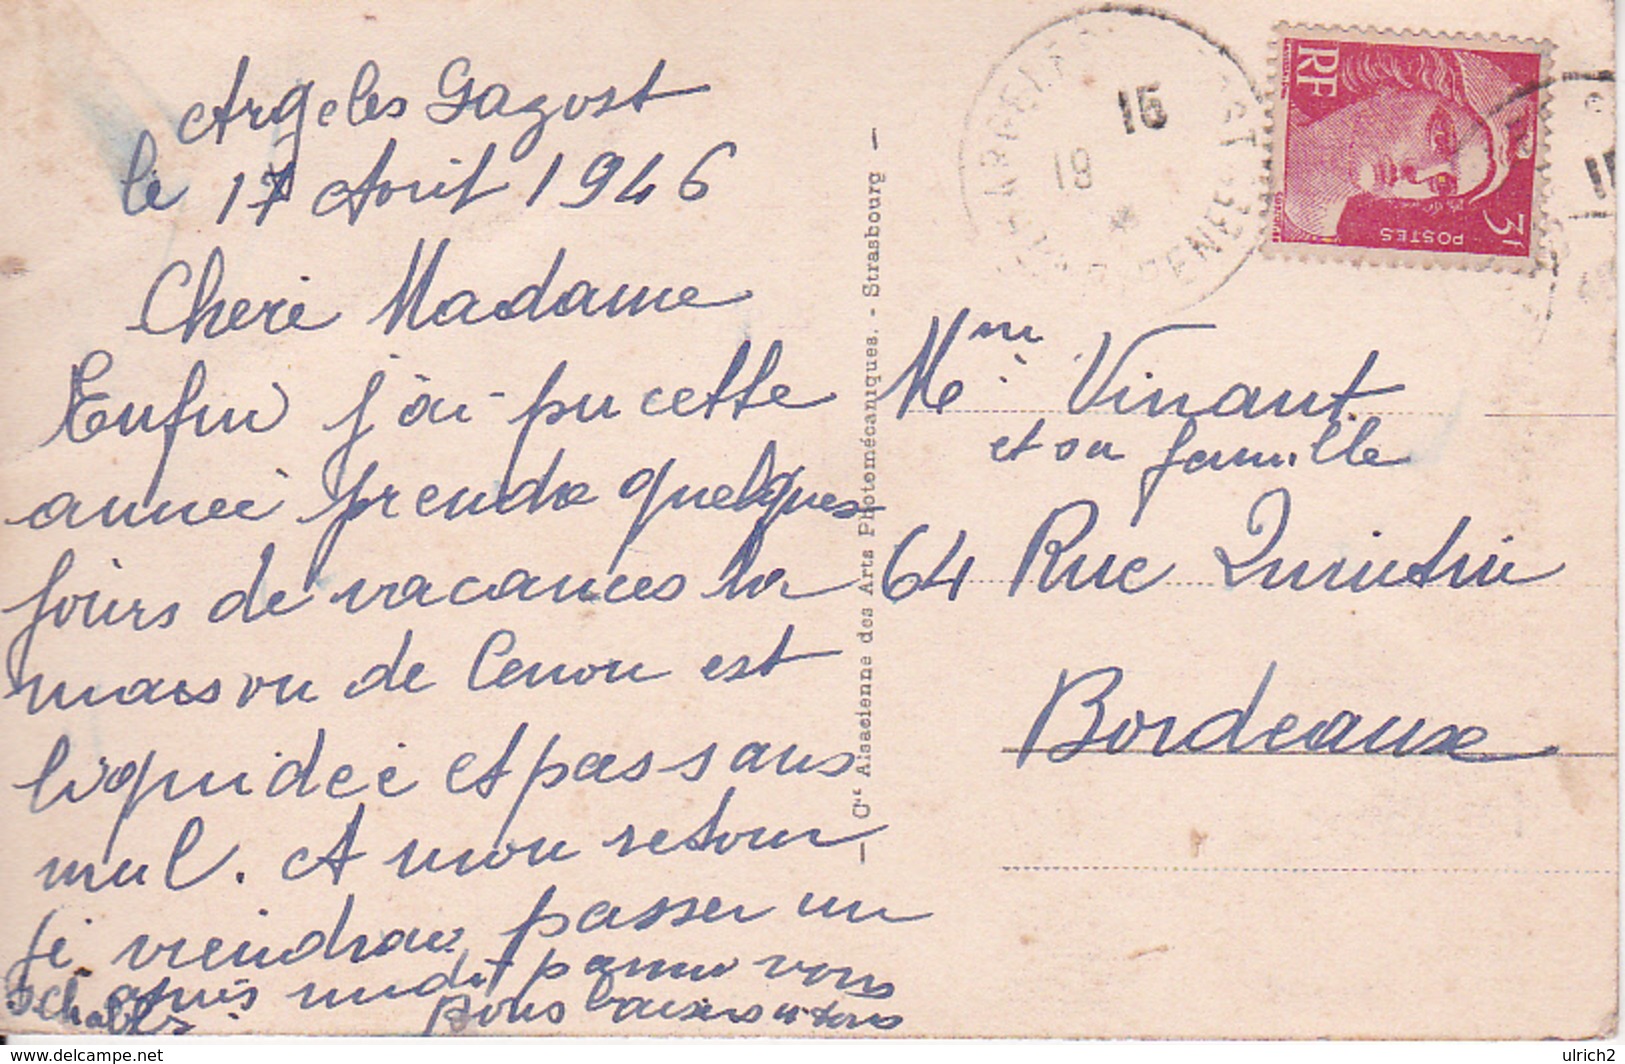 Argeles Gazost
le 17 Avril 1946
Cheré Madame
Enfin j'ai pu cette
anneé prendre quelques
jours de vacances la
maison de Cenon est
liquideé et pas sans
mal. A mon retour
je viendrai passer un
apres midi parmi vous
bons baisers a tous
— Cie Alsacienne des Arts Photomécaniques. - Strasbourg —
15
19
RF
3F
POSTES
Mme Vinant
et sa famille
64 Rue Quintin
Bordeaux
delcampe.net
ulrich2